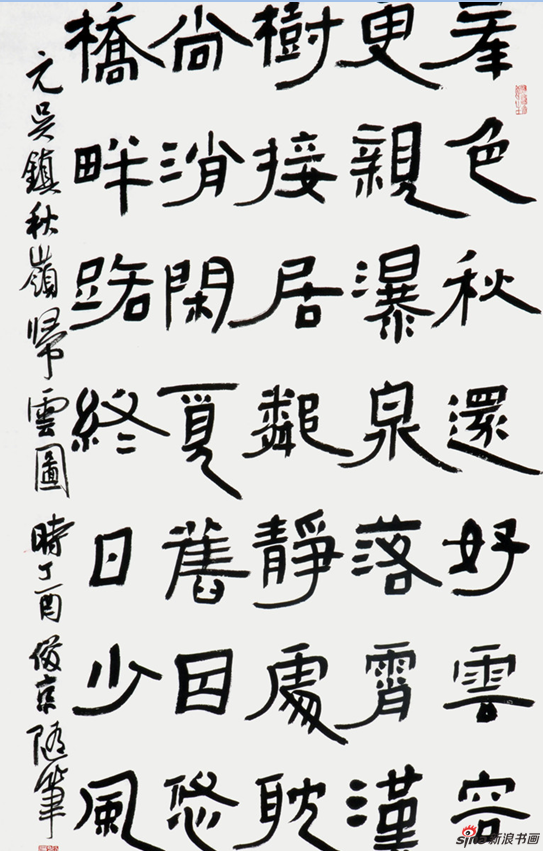 峯色秋還好雲容
更親瀑泉落霄漢
樹接居鄰靜處耽
尚消閑覓舊因悠
橋畔路終日少風
元吳鎮秋嶺歸雲圖 時丁酉俊京隨筆
sina新浪书画